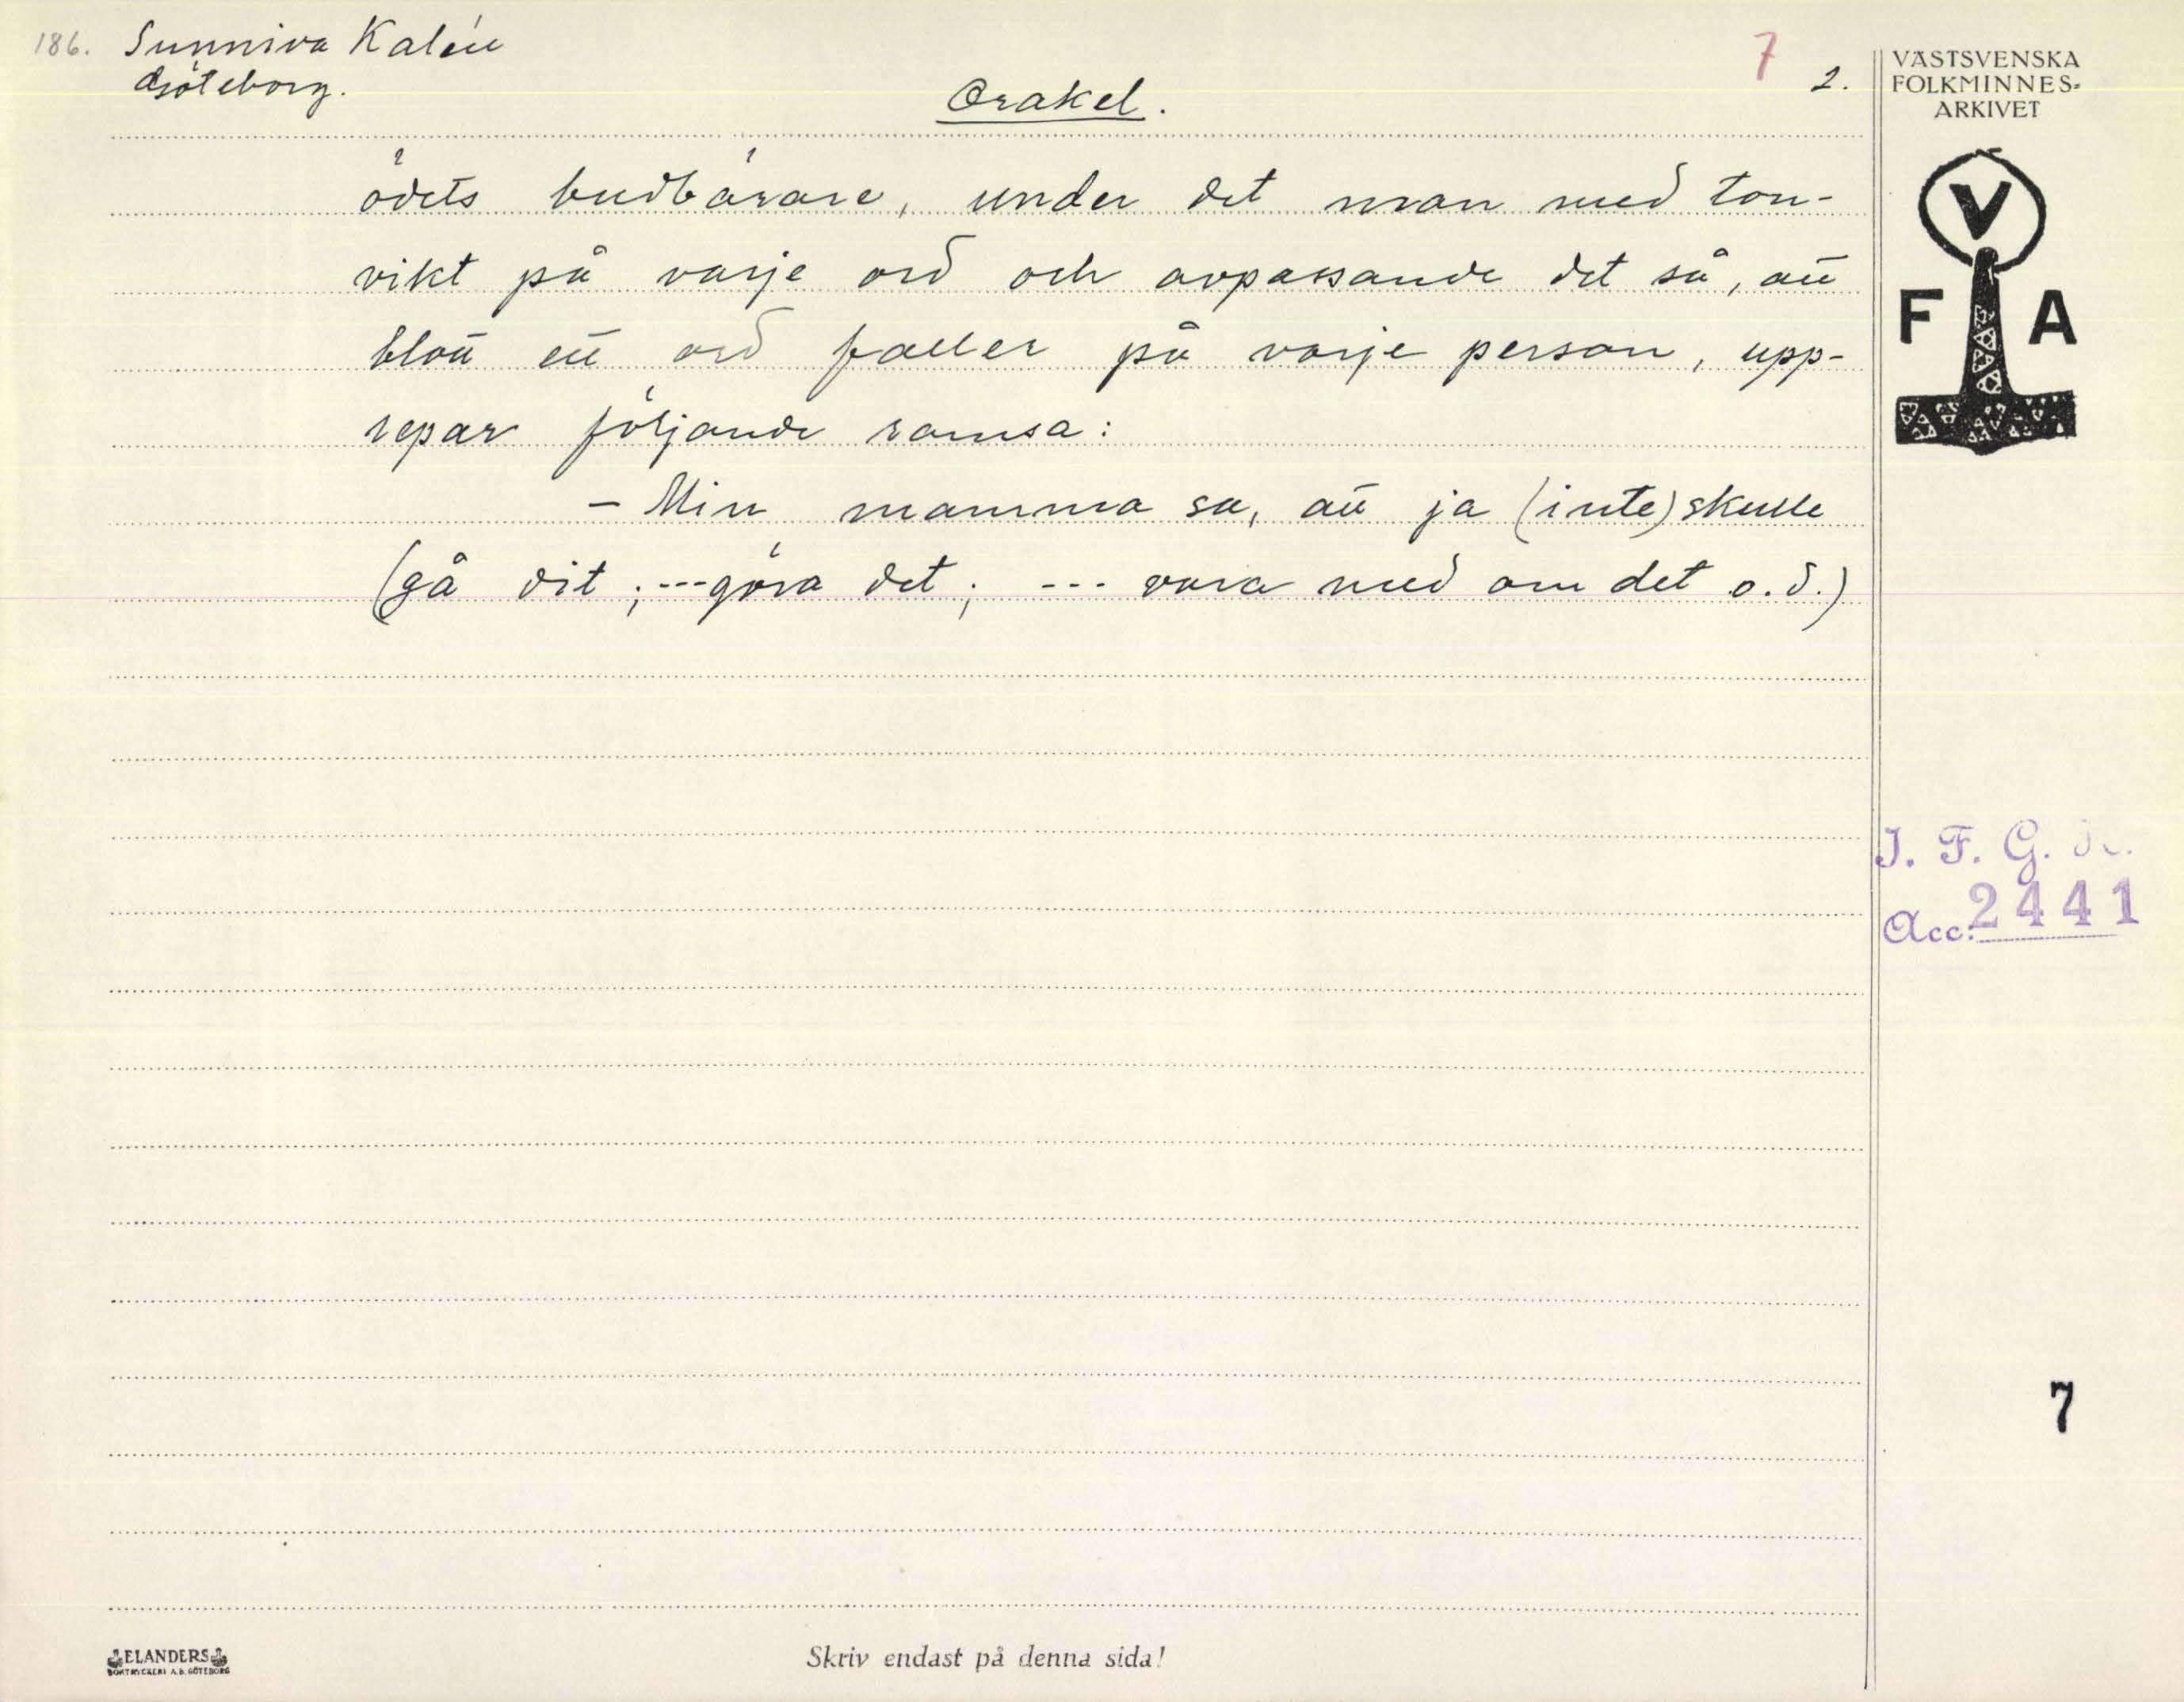 186. Sunniva Kalén
Göteborg.
Orakel.
7 2.
VÄSTSVENSKA
FOLKMINNES-
ARKIVET
V
F A
ödets budbärare, under det man med ton-
vikt på varje ord och avpassande det så, att
blott ett ord faller på varje person, upp-
repar följande ramsa:
– Min mamma sa, att ja (inte) skulle
(gå dit; --- göra det; --- vara med om det o.d.)
I. F. G. H.
Acc. 2441
7
ELANDERS
BOKTRYCKERI A.B. GÖTEBORG
Skriv endast på denna sida!